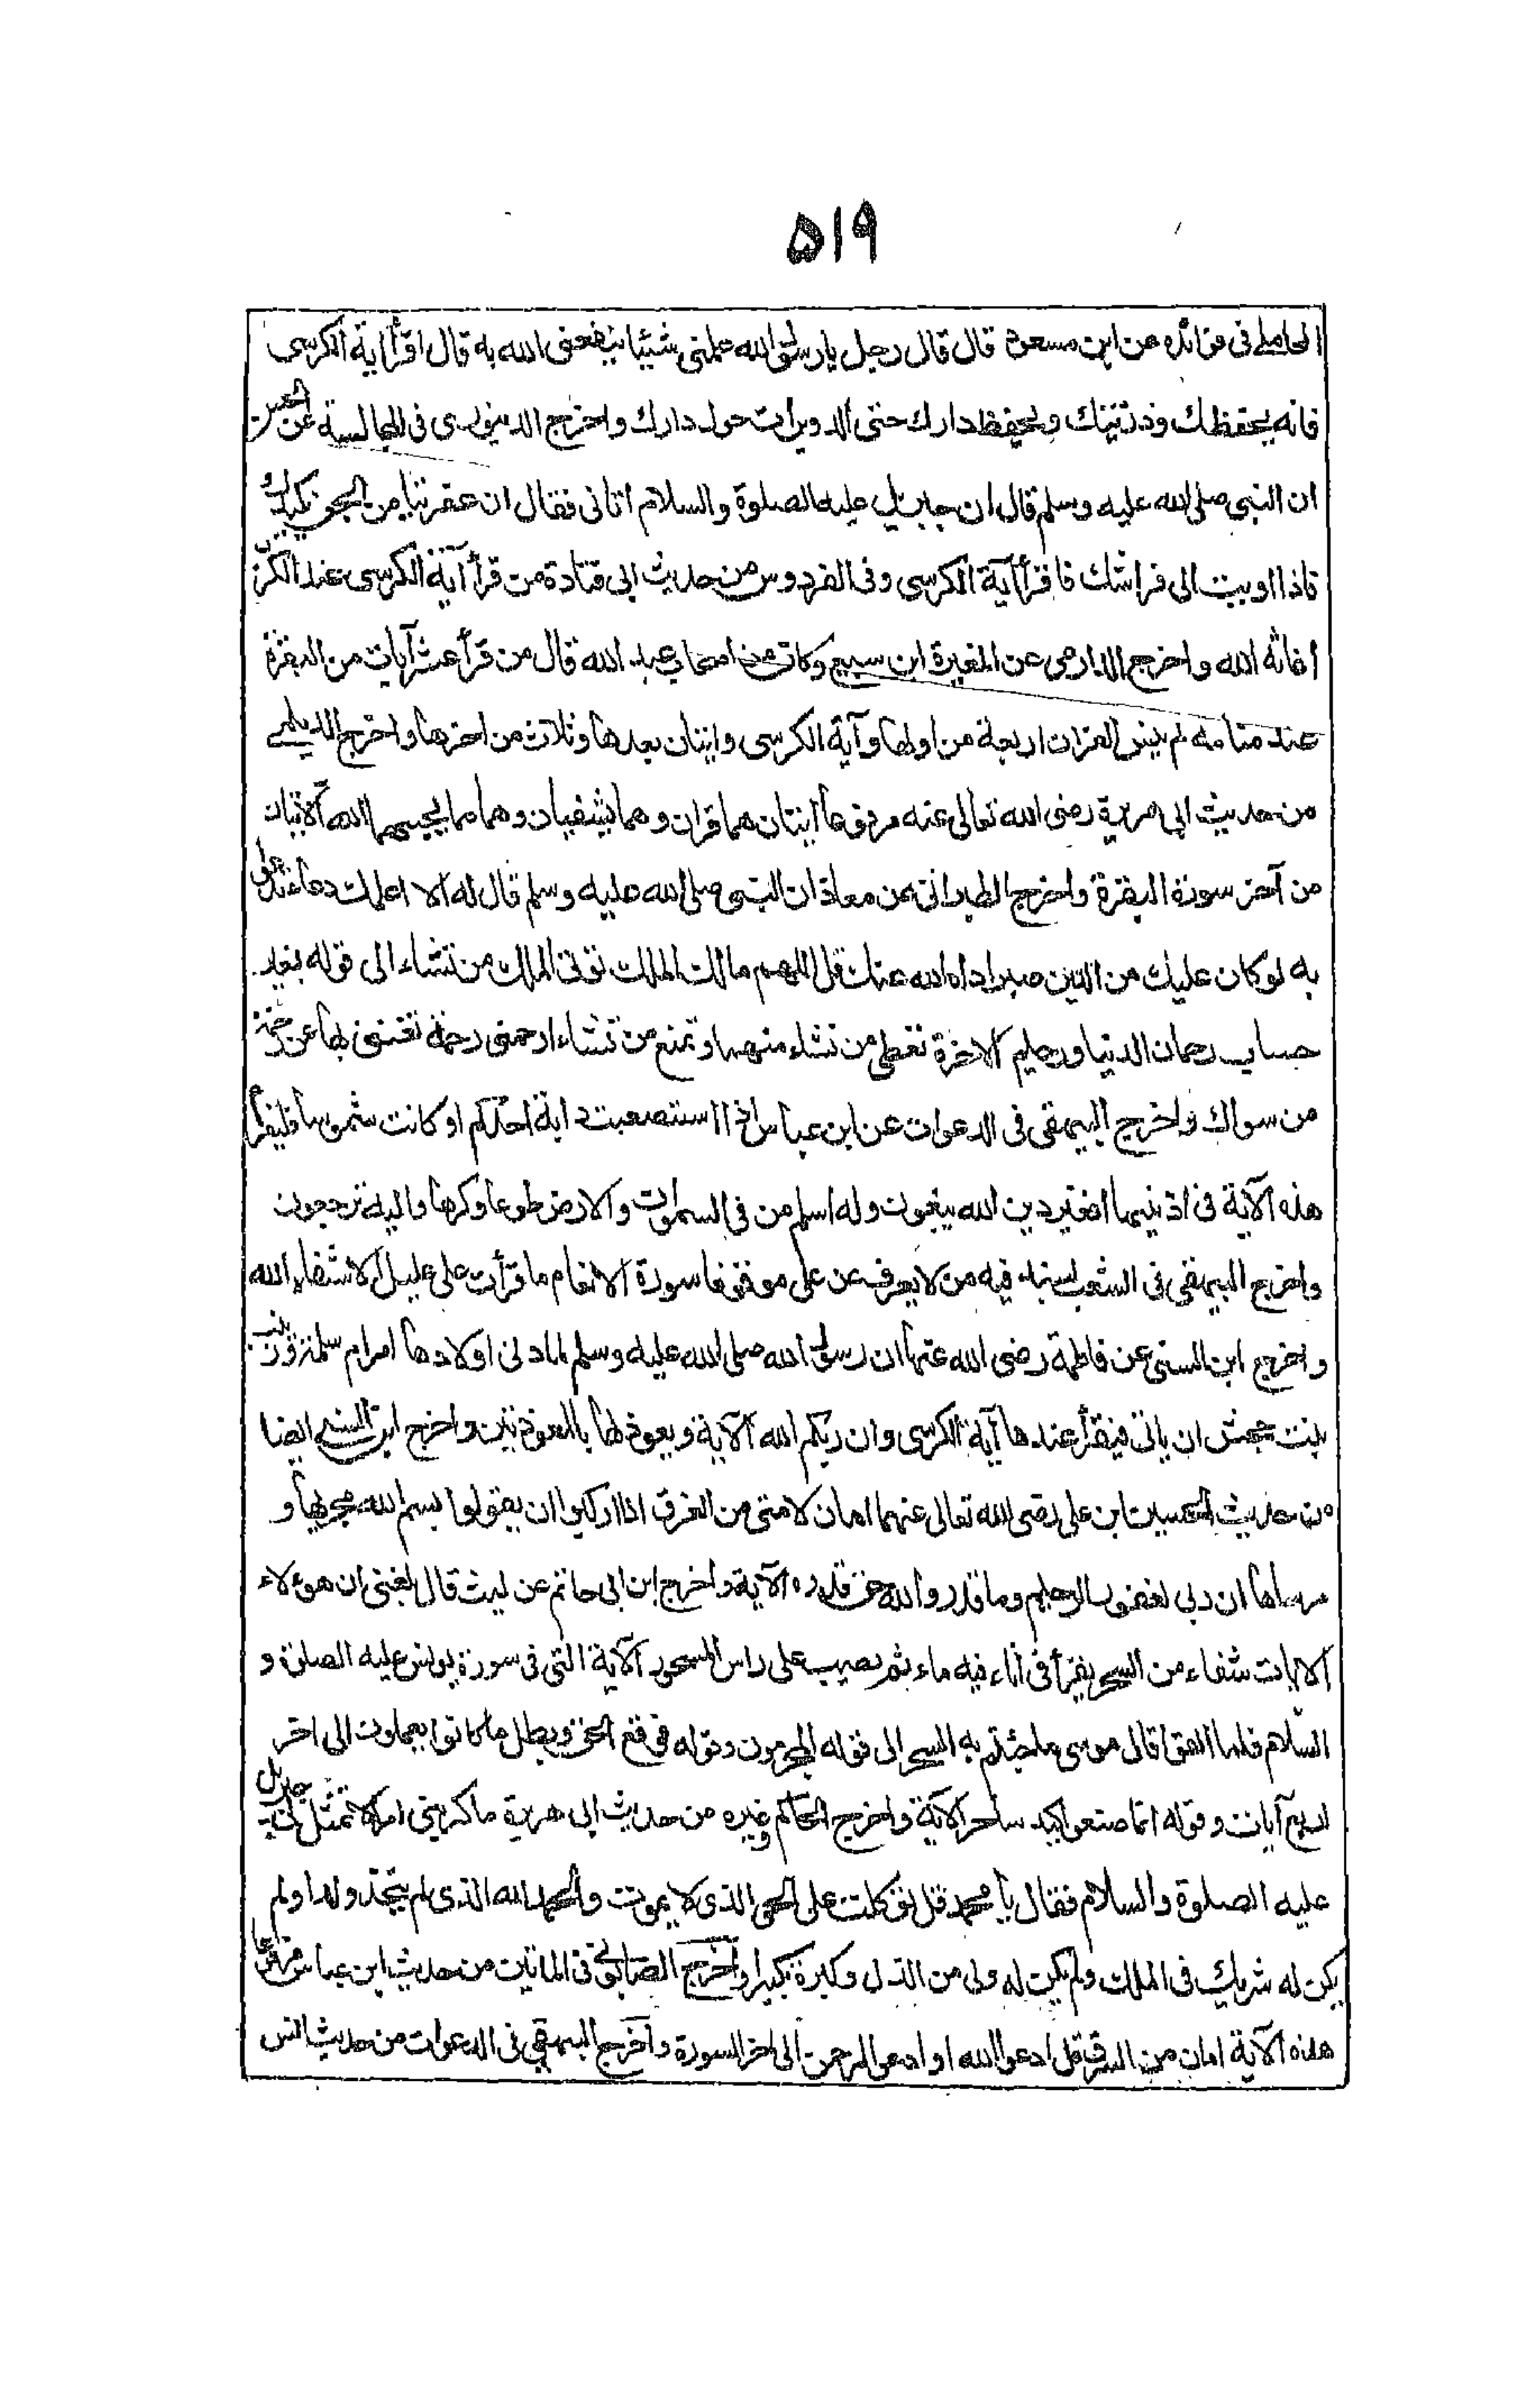 ۵۱۹
المحاملى فى فوائده عن ابن مسعود قال قال رجل يا رسول الله علمنى شيئا ينفعنى الله به قال اقرأ اية الكرسى
فانه يحفظك وذريتك ويحفظ دارك حتى الدويرات حول دارك واخرج الدينورى فى المجالسة عن الحسن
ان النبى صلى الله عليه وسلم قال ان جبريل عليه الصلوة والسلام اتانى فقال ان عفريتا من الجن يكيدك
فاذا اويت الى فراشك فاقرأ آية الكرسى وفى الفردوس من حديث ابى قتادة من قرأ آية الكرسى عند الكرب
أغاثه الله واخرج الدارمى عن المغيرة ابن سبيع وكان من اصحاب عبد الله قال من قرأ عشر آيات من البقرة
عند منامه لم ينس القران اربعة من اولها وآية الكرسى وايتان بعدها وثلاث من اخرها واخرج الديلمى
من حديث ابى هريرة رضى الله تعالى عنه مرفوعا ايتان هما قران وهما يشفيان وهما مما يحبهما الله الآيتان
من آخر سورة البقرة واخرج الطبرانى عن معاذ ان النبى صلى الله عليه وسلم قال له الا اعلمك دعاء تدعو
به لو كان عليك من الدين صبر اداه الله عنك قل اللهم مالك الملك توتى الملك من تشاء الى قوله بغير
حساب رحمان الدنيا ورحيم الاخرة تعطى من تشاء منهما وتمنع من تشاء ارحمنى رحمة تغنينى بها عن رحمة
من سواك واخرج البيهقى فى الدعوات عن ابن عباس اذا استصعبت دابة احدكم او كانت شموسا فليقرأ
هذه الآية فى اذنيها أفغير دين الله يبغون وله اسلم من فى السموات والارض طوعا وكرها واليه ترجعون
واخرج البيهقى فى الشعب بسند فيه من لا يعرف عن على موقوفا سورة الانعام ما قرأت على عليل الا شفاه الله
واخرج ابن السنى عن فاطمة رضى الله عنها ان رسول الله صلى الله عليه وسلم لما دنى اولادها امر ام سلمة وزينب
بنت جحش ان ياتى فيقرأ عندها آية الكرسى وان ربكم الله الآية ويعوذ لها بالمعوذتين واخرج ابن السنى ايضا
من حديث الحسين ابن على رضى الله تعالى عنهما امان لامتى من الغرق اذا اركبوا ان يقولوا بسم الله مجريها و
مرساها ان ربى لغفور الرحيم وما قدروا الله حق قدره الآية واخرج ابن ابى حاتم عن ليث قال بلغنى ان هؤلاء
الايات شفاء من السحر يقرأ فى اناء فيه ماء ثم يصب على راس المسحور الآية التى فى سورة يونس عليه الصلوة و
السلام فلما القوا قال موسى ما جئتم به السحر الى قوله المجرمون وقوله فوقع الحق وبطل ما كانوا يعملون الى اخر
اربع آيات وقوله انما صنعوا كيد ساحر الآية واخرج الحاكم وغيره من حديث ابى هريرة ما كربنى امر الا تمثل لى جبريل
عليه الصلوة والسلام فقال يا محمد قل توكلت على الحى الذى لا يموت والحمد لله الذى لم يتخذ ولدا ولم
يكن له شريك فى الملك ولم يكن له ولى من الذل وكبره تكبيرا واخرج الصابونى فى الماتين من حديث ابن عباس مرفوعا
هذه الآية امان من السرق قل ادعوا الله او ادعوا الرحمن الى اخر السورة واخرج البيهقى فى الدعوات من حديث انس